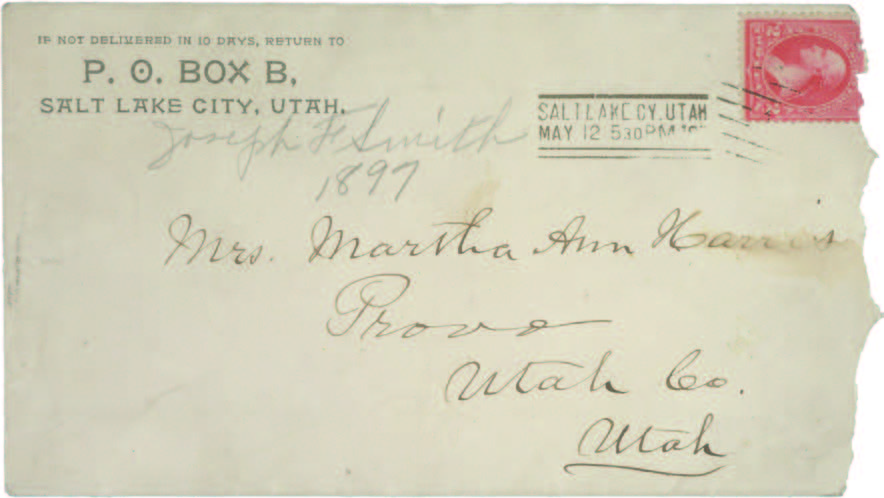 IF NOT DELIVERED IN 10 DAYS, RETURN TO
P. O. BOX B,
SALT LAKE CITY, UTAH.
Joseph F Smith
1897
SALT LAKE CY. UTAH
MAY 12 5 30 PM
Mrs. Martha Ann Harris
Provo
Utah Co.
Utah